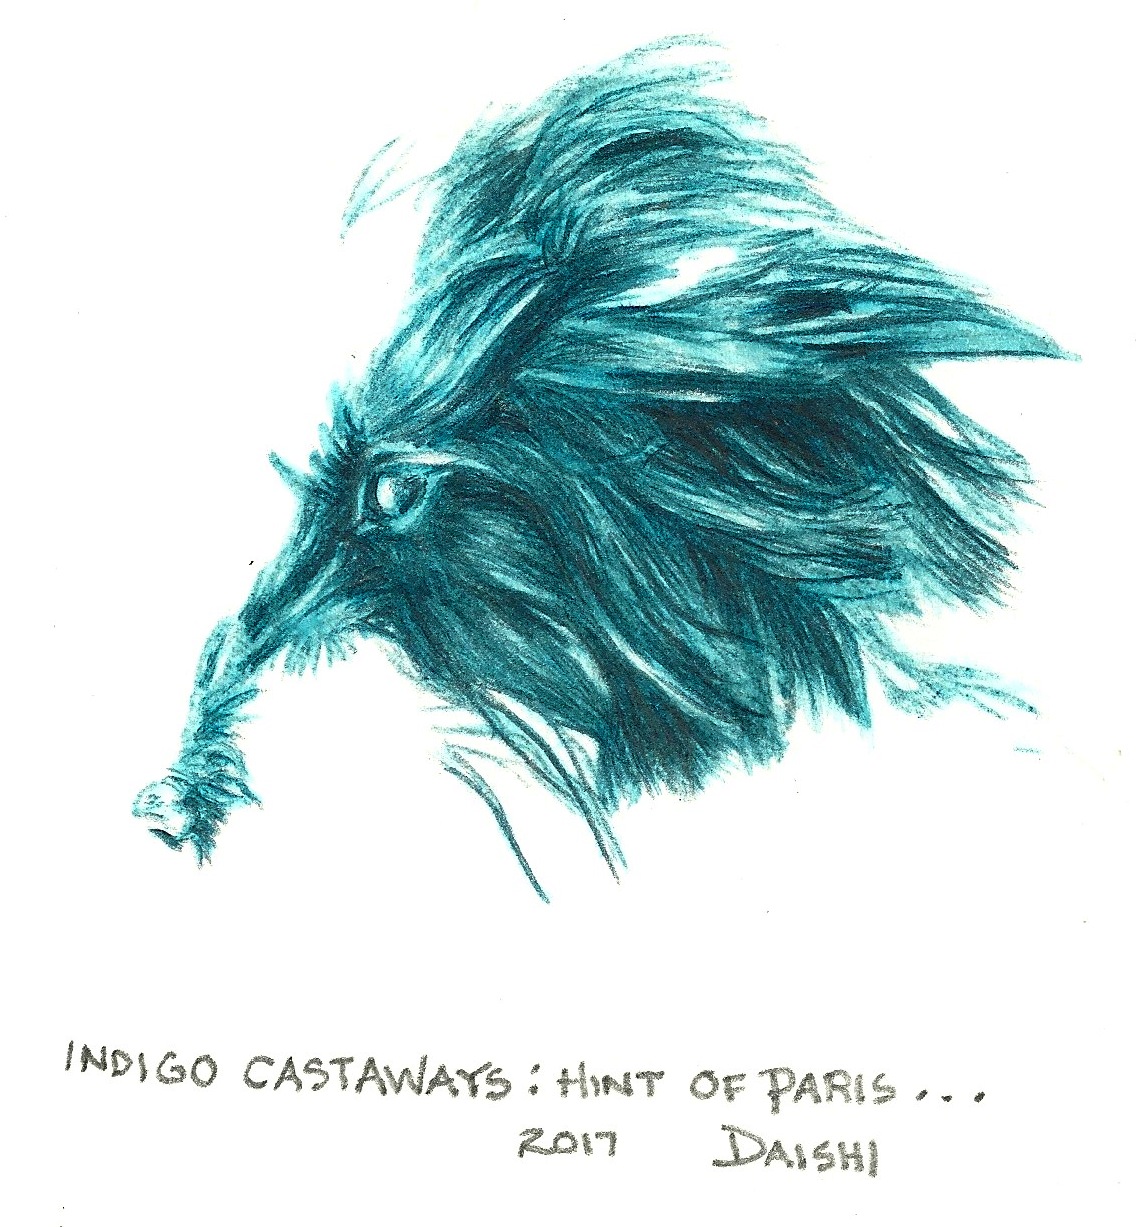 INDIGO CASTAWAYS: HINT OF PARIS...
2017 DAISHI